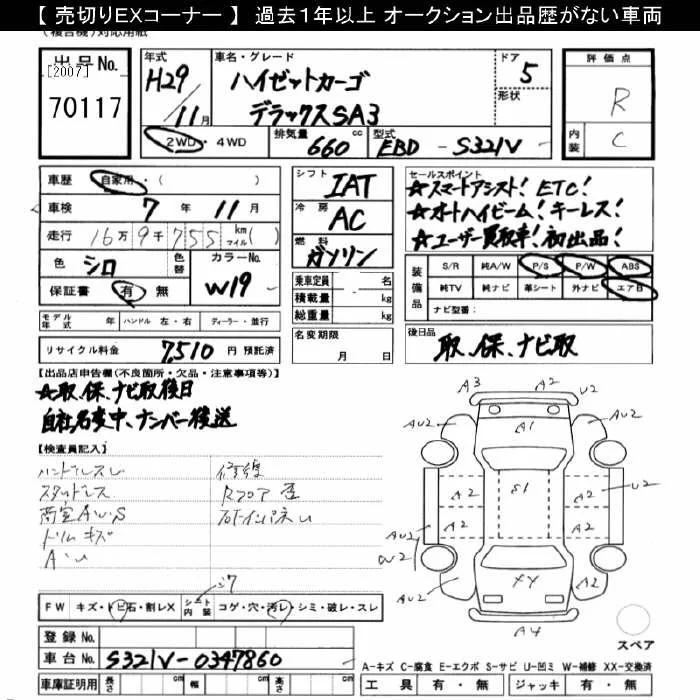 【 売切りEXコーナー 】 過去１年以上 オークション出品歴がない車両
(複合機)対応用紙
出品No.
[2007]
70117
年式
H29/11月
車名・グレード
ハイゼットカーゴ
デラックスSA3
ドア
5
形状
2WD・4WD
排気量 660 cc
型式 EBD - S321V
評価点
R
内装
C
車歴 自家用・( )
車検 7年 11月
走行 16万9千755 km マイル( )
色 シロ 色替
カラーNo. W19
保証書 有 無
モデル年式 年 ハンドル 左・右 ディーラー・並行
リサイクル料金 7,510 円 預託済
シフト
IAT
冷房
AC
燃料
ガソリン
乗車定員 - 名
積載量 - kg
総重量 - kg
名変期限
月 日
セールスポイント
☆スマートアシスト! ETC!
☆オートハイビーム! キーレス!
☆ユーザー買取車! 初出品!
装備品
S/R 純A/W P/S P/W ABS
純TV 純ナビ 革シート 外ナビ エアB
ナビ型番:
後日品
取、保、ナビ取
【出品店申告欄(不良箇所・欠品・注意事項等)】
☆取、保、ナビ取後日
自社名変中、ナンバー後送
【検査員記入】
ハンドルスレ
スタッドレス
荷室AWS
ドリムキズ
A・U
修復
Rフロア歪
A3 A2 U2
AU2 A1 AU2
A2 A2 S1 A2 U2
AU2 A2 A2
U2
XY A2
AU2
A4
スペア
FW キズ・トビ石・割レX シート内装 コゲ・穴・汚レ・シミ・破レ・スレ
登録No.
車台No. S321V-0347860
車庫証明用 長さ cm 幅 cm 高さ cm
A-キズ C-腐食 E-エクボ S-サビ U-凹ミ W-補修 XX-交換済
工具 有・無 ジャッキ 有・無